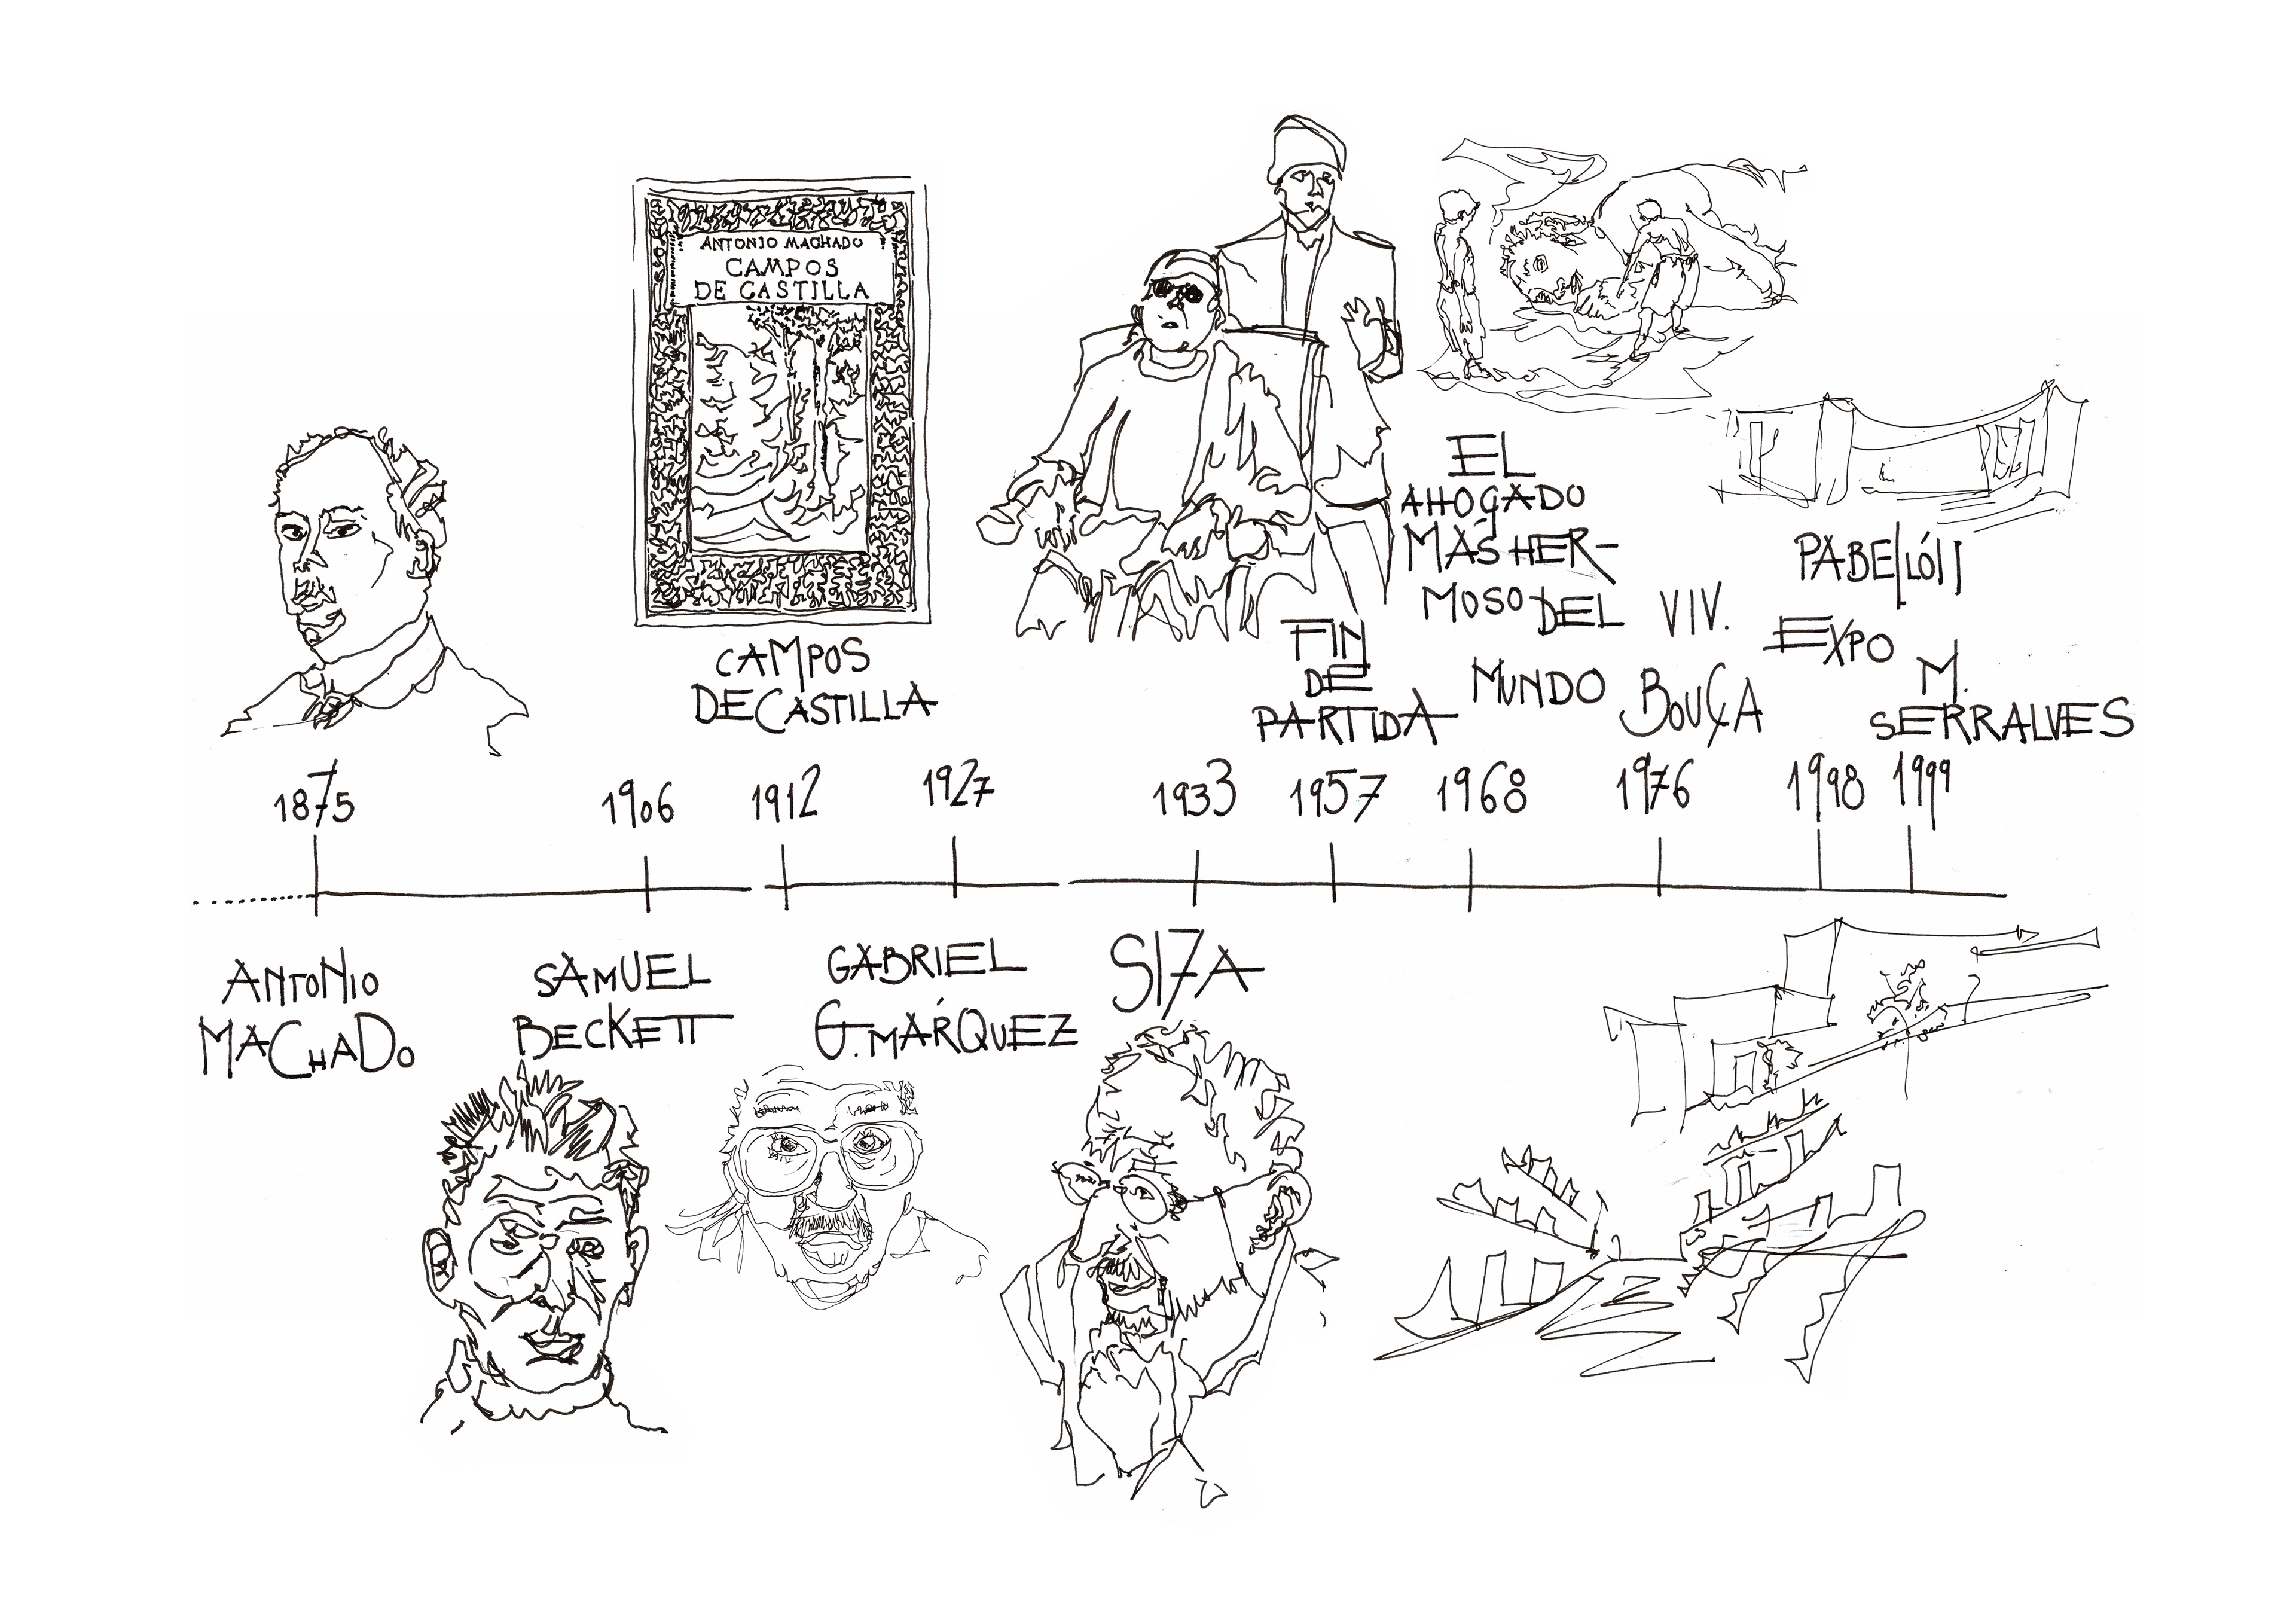 ANTONIO MACHADO
CAMPOS
DE CASTILLA
CAMPOS
DE CASTILLA
FIN
DE
PARTIDA
EL
AHOGADO
MÁS HER-
MOSO DEL
MUNDO
VIV.
BOUÇA
PABELLÓN
EXPO
M.
SERRALVES
1875
1906
1912
1927
1933
1957
1968
1976
1998
1999
ANTONIO
MACHADO
SAMUEL
BECKETT
GABRIEL
G. MÁRQUEZ
SIZA